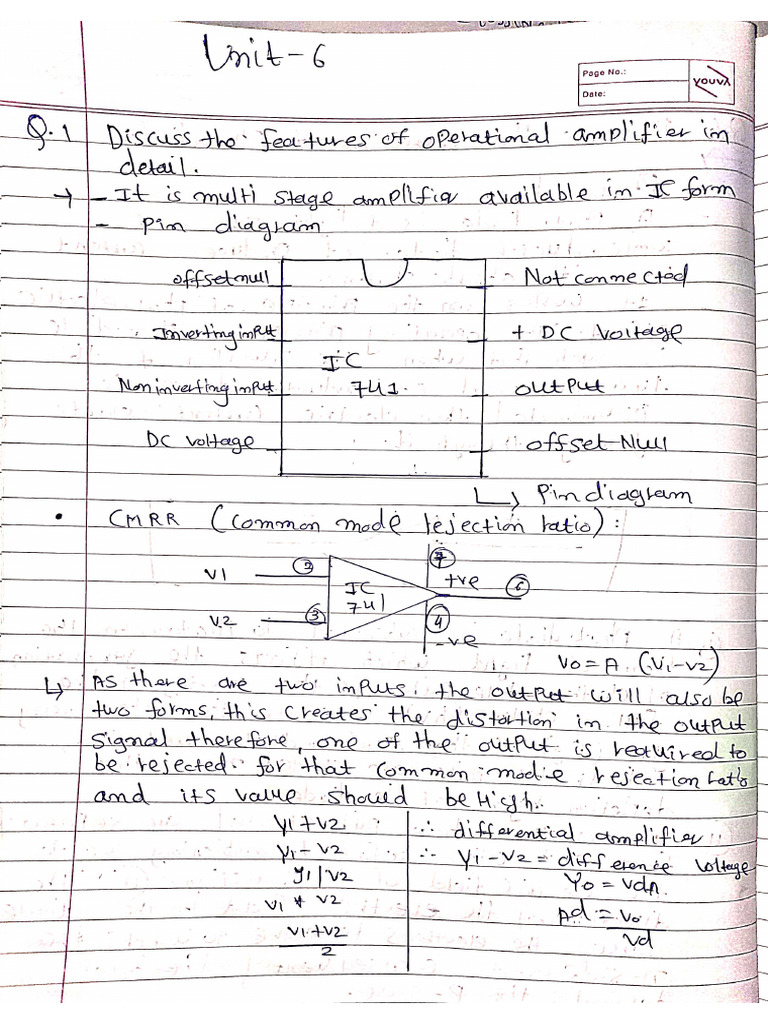 Unit-6
Page No.:
Date:
YOUVA
Q.1 Discuss the features of operational amplifier in
detail.
→ - It is multi stage amplifier available in IC form
- Pin diagram
offset null
Not connected
Inverting input
+ DC Voltage
IC
741
Non inverting input
output
DC voltage
offset Null
↳ Pin diagram
• CMRR (common mode rejection ratio):
V1
2
IC
741
7
+ve
6
V2
3
4
-ve
Vo = A (V1-V2)
↳ As there are two inputs the output will also be
two forms, this creates the distortion in the output
signal therefore, one of the output is required to
be rejected for that common mode rejection ratio
and its value should be High.
V1+V2
∴ differential amplifier
V1-V2
∴ V1-V2 = difference voltage
V1/V2
Vo = VdA
V1 * V2
Ad = Vo/Vd
V1+V2
2